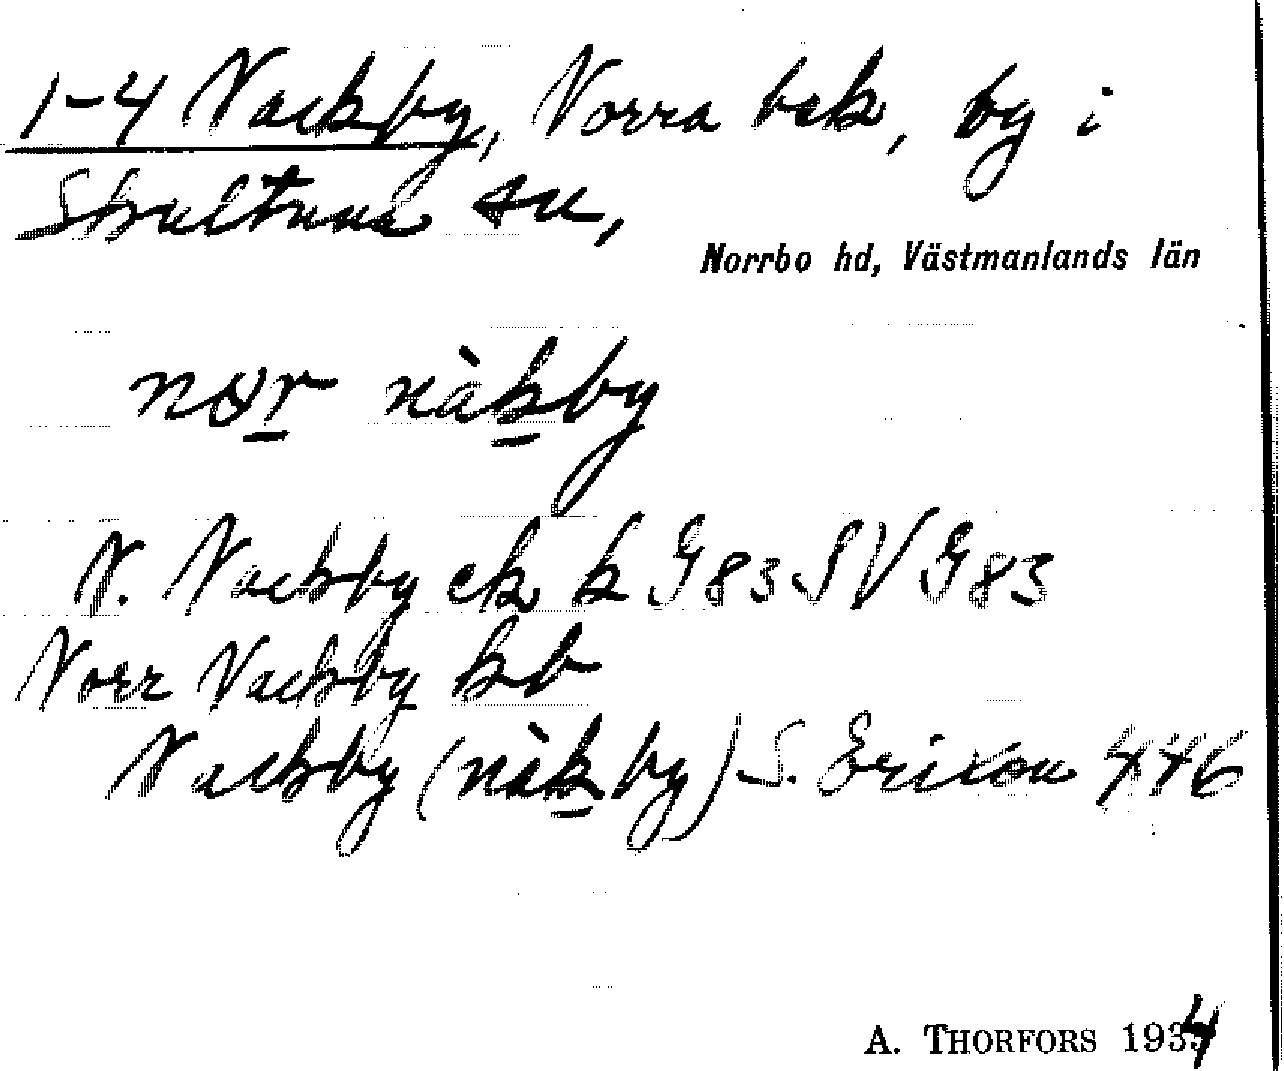 1-4 Nackby, Norra bek, by i
Skultuna sn,
Norrbo hd, Västmanlands län
nɷr nàkby
N. Nackby ek k G 83 SV G 83
Norr Nackby kb
Nackby (nàkby) S. Erixon 446
A. THORFORS 1934